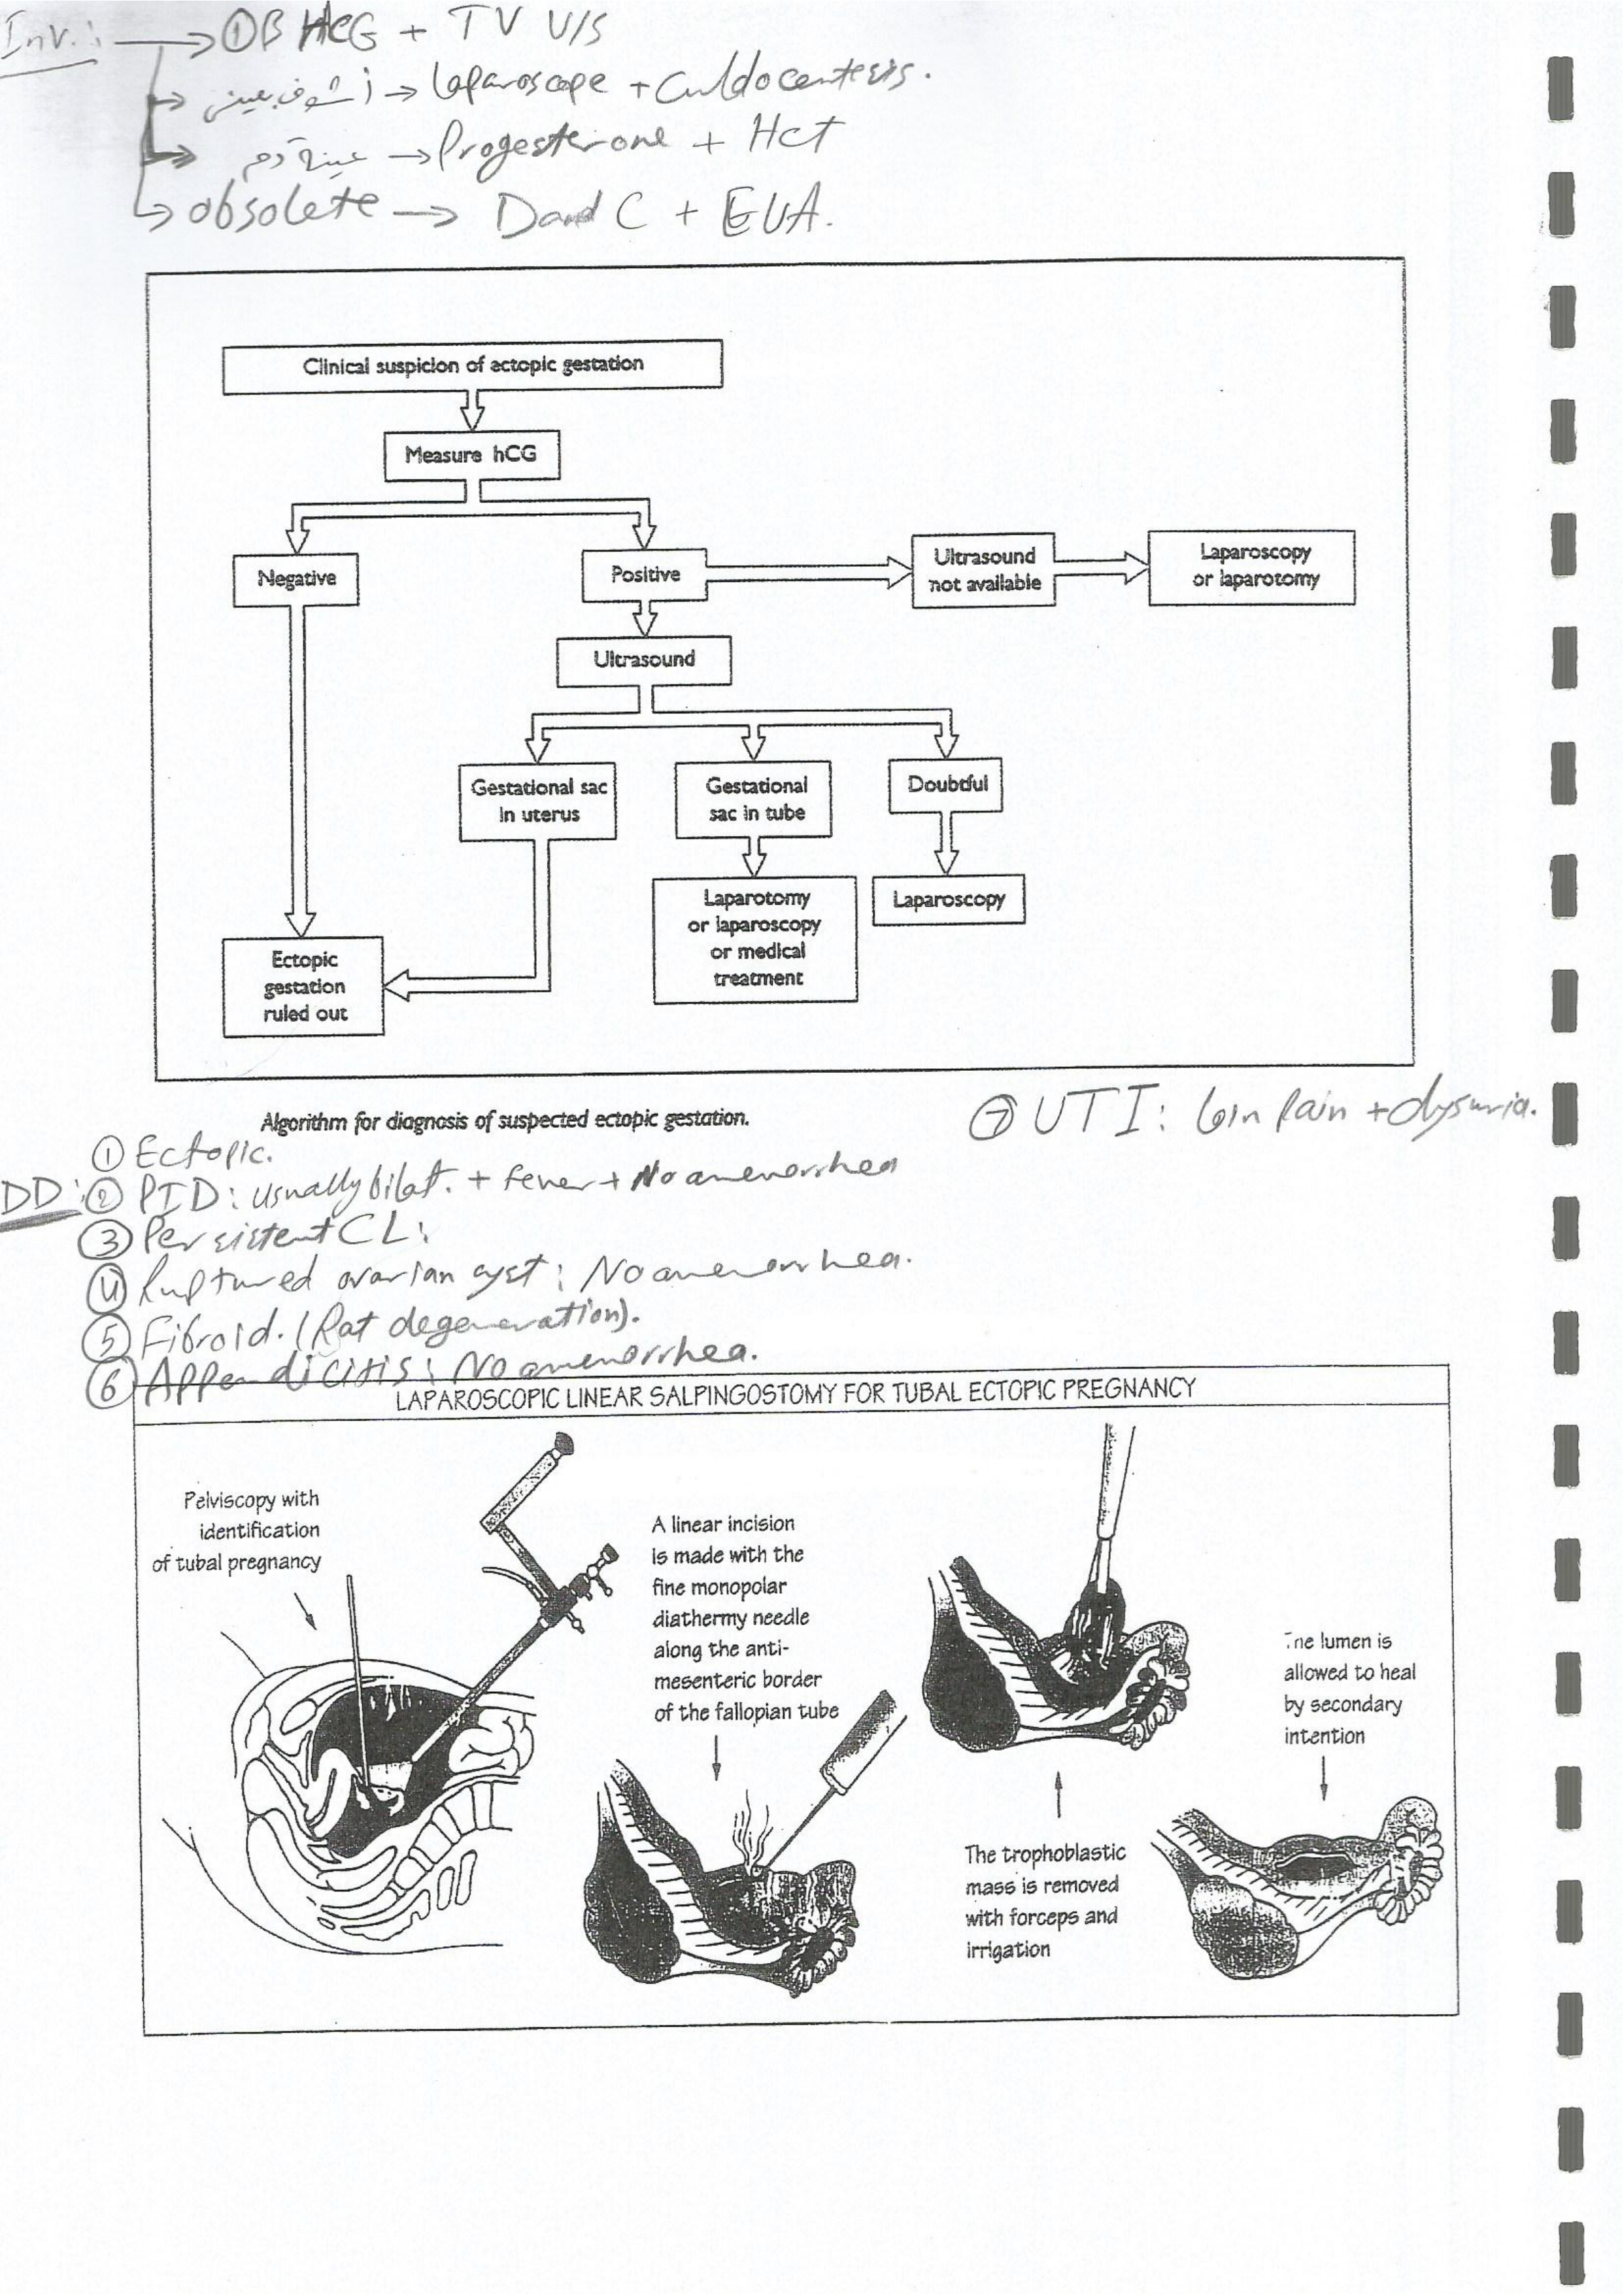 Inv. : → ① B HCG + TV U/S
→ أشوف بعيني → laparoscope + Culdocentesis.
→ عينة دم → Progesterone + Hct
→ obsolete → D and C + EUA.
Clinical suspicion of ectopic gestation
Measure hCG
Negative
Positive
Ultrasound
not available
Laparoscopy
or laparotomy
Ultrasound
Gestational sac
in uterus
Gestational
sac in tube
Doubtful
Laparotomy
or laparoscopy
or medical
treatment
Laparoscopy
Ectopic
gestation
ruled out
Algorithm for diagnosis of suspected ectopic gestation.
⑦ UTI: loin Pain + dysuria.
① Ectopic.
DD: ② PID: usually bilat. + fever + No amenorrhea
③ Persistent CL:
④ Ruptured ovarian cyst: No amenorrhea.
⑤ Fibroid. ( degeneration).
⑥ Appendicitis: No amenorrhea.
LAPAROSCOPIC LINEAR SALPINGOSTOMY FOR TUBAL ECTOPIC PREGNANCY
Pelviscopy with
identification
of tubal pregnancy
A linear incision
is made with the
fine monopolar
diathermy needle
along the anti-
mesenteric border
of the fallopian tube
The trophoblastic
mass is removed
with forceps and
irrigation
The lumen is
allowed to heal
by secondary
intention